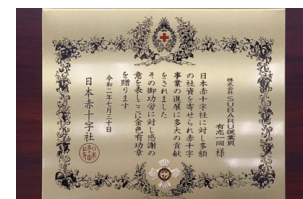 株式会社SUBARU従業員
有志一同 様
日本赤十字社に対し多額
の社資を寄せられ赤十字
事業の進展に多大の貢献
をされました
その御功労に対し感謝の
意を表しここに金色有功章
を贈ります
令和二年七月三十日
日本赤十字社